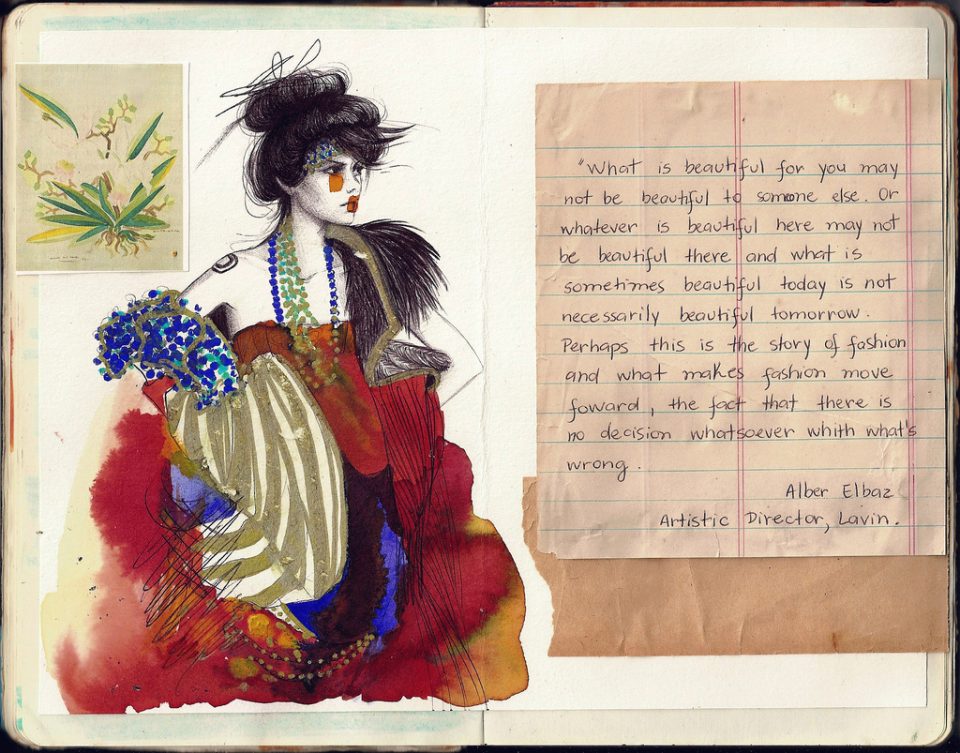 "What is beautiful for you may
not be beautiful to someone else. Or
whatever is beautiful here may not
be beautiful there and what is
sometimes beautiful today is not
necessarily beautiful tomorrow.
Perhaps this is the story of fashion
and what makes fashion move
foward, the fact that there is
no decision whatsoever whith what's
wrong.
Alber Elbaz
Artistic Director, Lavin.